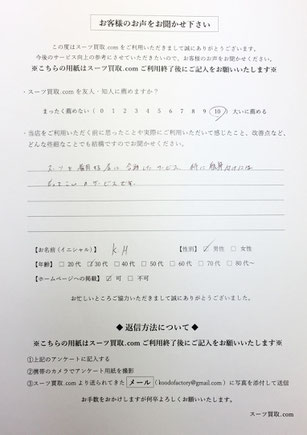 お客様のお声をお聞かせ下さい
この度はスーツ買取.comをご利用いただきまして誠にありがとうございます。
今後のサービス向上の参考にさせていただきたいので、お客様のお声をお聞かせください。
※こちらの用紙はスーツ買取.comご利用終了後にご記入をお願いいたします※
・スーツ買取.comを友人・知人に薦めますか?
まったく薦めない (0 1 2 3 4 5 6 7 8 9 10) 大いに薦める
・当店をご利用いただく前に思ったことや実際にご利用いただいて感じたこと、改善点など、
どんな些細なことでも結構ですのでお聞かせください。
スーツを
サービス
サービスです。
【お名前(イニシャル)】 KH 【性別】 ☑ 男性 □ 女性
【年齢】 □ 20代 ☑ 30代 □ 40代 □ 50代 □ 60代 □ 70代 □ 80代~
【ホームページへの掲載】 ☑ 可 □ 不可
お忙しいところご協力いただきまして誠にありがとうございました。
◆ 返信方法について ◆
※こちらの用紙はスーツ買取.comご利用終了後にご記入をお願いいたします※
①上記のアンケートに記入する
②携帯のカメラでアンケート用紙を撮影
③スーツ買取.comより送られてきた メール (koodofactory@gmail.com) に写真を添付して送信
お手数をおかけしますが何卒よろしくお願いいたします。
スーツ買取.com